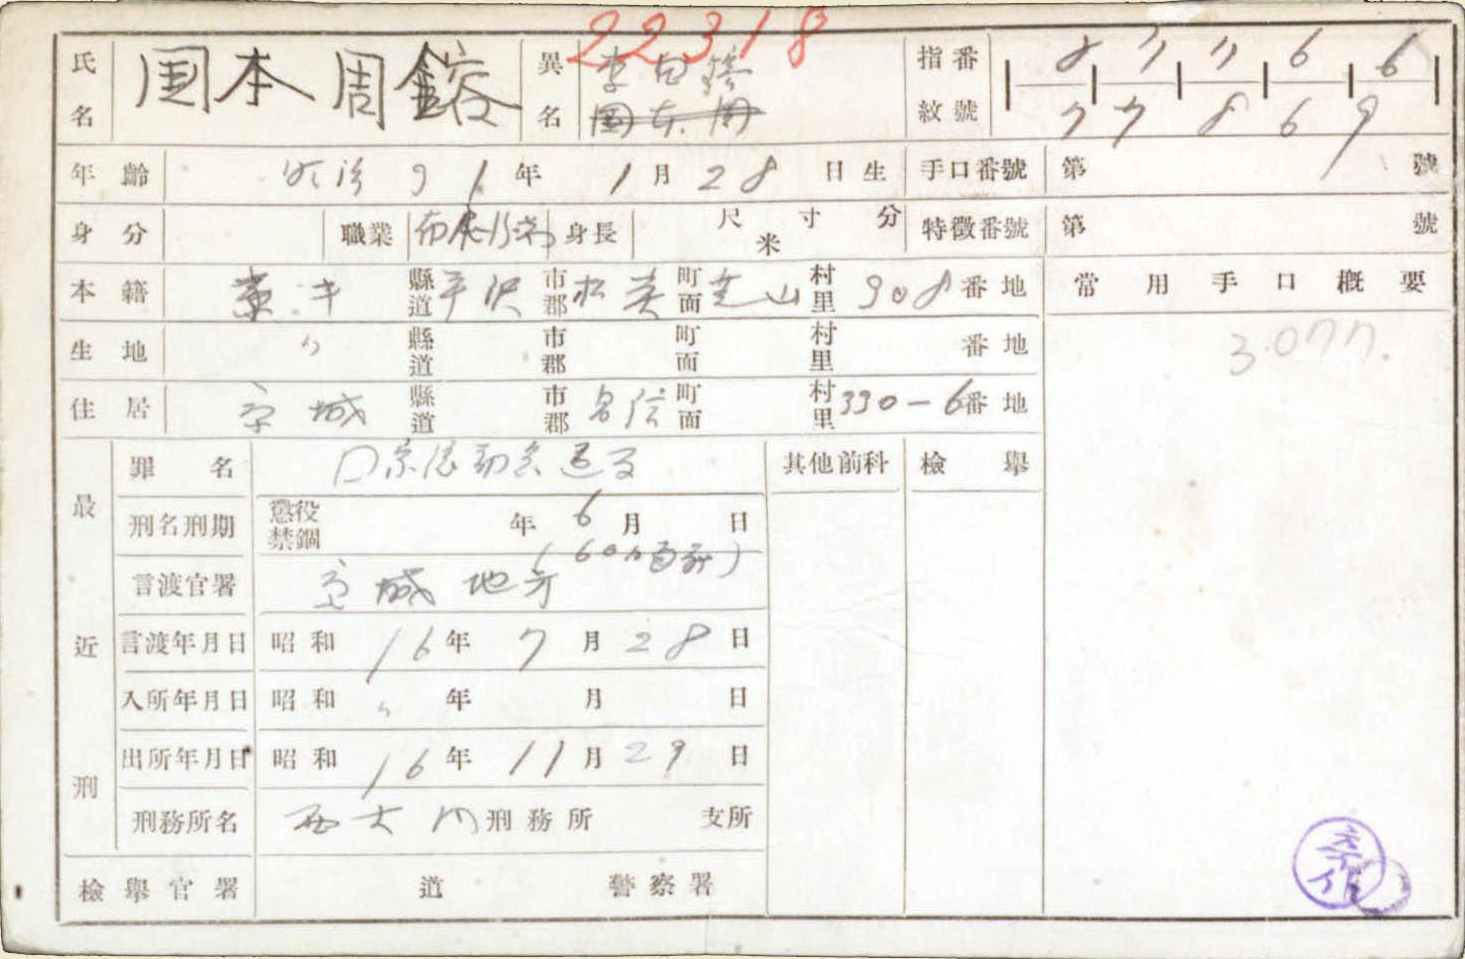 22318
氏名 国本周鎔 異名 指紋番號 8 7 7 6 6
7 7 8 6 9
年齡 明治 年 1月28日生 手口番號 第 號
身分 職業 身長 尺寸分 米 特徵番號 第 號
本籍 縣道 平沢 市郡 松炭 町面 芝山 村里 908番地 常用手口概要
生地 〃 縣道 市郡 町面 村里 番地 3077.
住居 京城 縣道 市郡 町面 村里 330-6番地
最近刑
罪名 其他前科 檢擧
刑名刑期 懲役 禁錮 年6月 日
言渡官署 京城地方
言渡年月日 昭和16年7月28日
入所年月日 昭和〃年 月 日
出所年月日 昭和16年11月29日
刑務所名 西大門刑務所 支所
檢擧官署 道 警察署